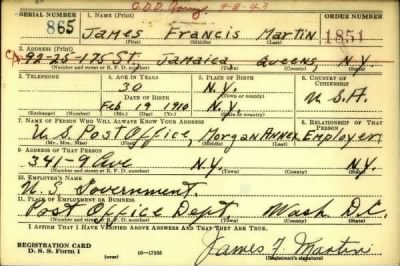 9-8-43
SERIAL NUMBER 1. NAME (Print) ORDER NUMBER
865 James Francis Martin 1851
(First) (Middle) (Last)
2. ADDRESS (Print)
92-25-175 St, Jamaica Queens, N.Y.
(Number and street or R. F. D. number) (Town) (County) (State)
3. TELEPHONE 4. AGE IN YEARS 5. PLACE OF BIRTH 6. COUNTRY OF CITIZENSHIP
30 N.Y.
DATE OF BIRTH (Town or county)
Feb 19 1910 N.Y. U.S.A.
(Exchange) (Number) (Mo.) (Day) (Yr.) (State or country)
7. NAME OF PERSON WHO WILL ALWAYS KNOW YOUR ADDRESS 8. RELATIONSHIP OF THAT PERSON
U.S. Post Office, Morgan Annex Employer
(Mr., Mrs., Miss) (First) (Middle) (Last)
9. ADDRESS OF THAT PERSON
341-9 Ave N.Y. N.Y.
(Number and street or R. F. D. number) (Town) (County) (State)
10. EMPLOYER'S NAME
U.S. Government.
11. PLACE OF EMPLOYMENT OR BUSINESS
Post Office Dept. Wash D.C.
(Number and street or R. F. D. number) (Town) (County) (State)
I AFFIRM THAT I HAVE VERIFIED ABOVE ANSWERS AND THAT THEY ARE TRUE.
REGISTRATION CARD
D. S. S. Form 1 (over) 16-17105 James F Martin
(Registrant's signature)